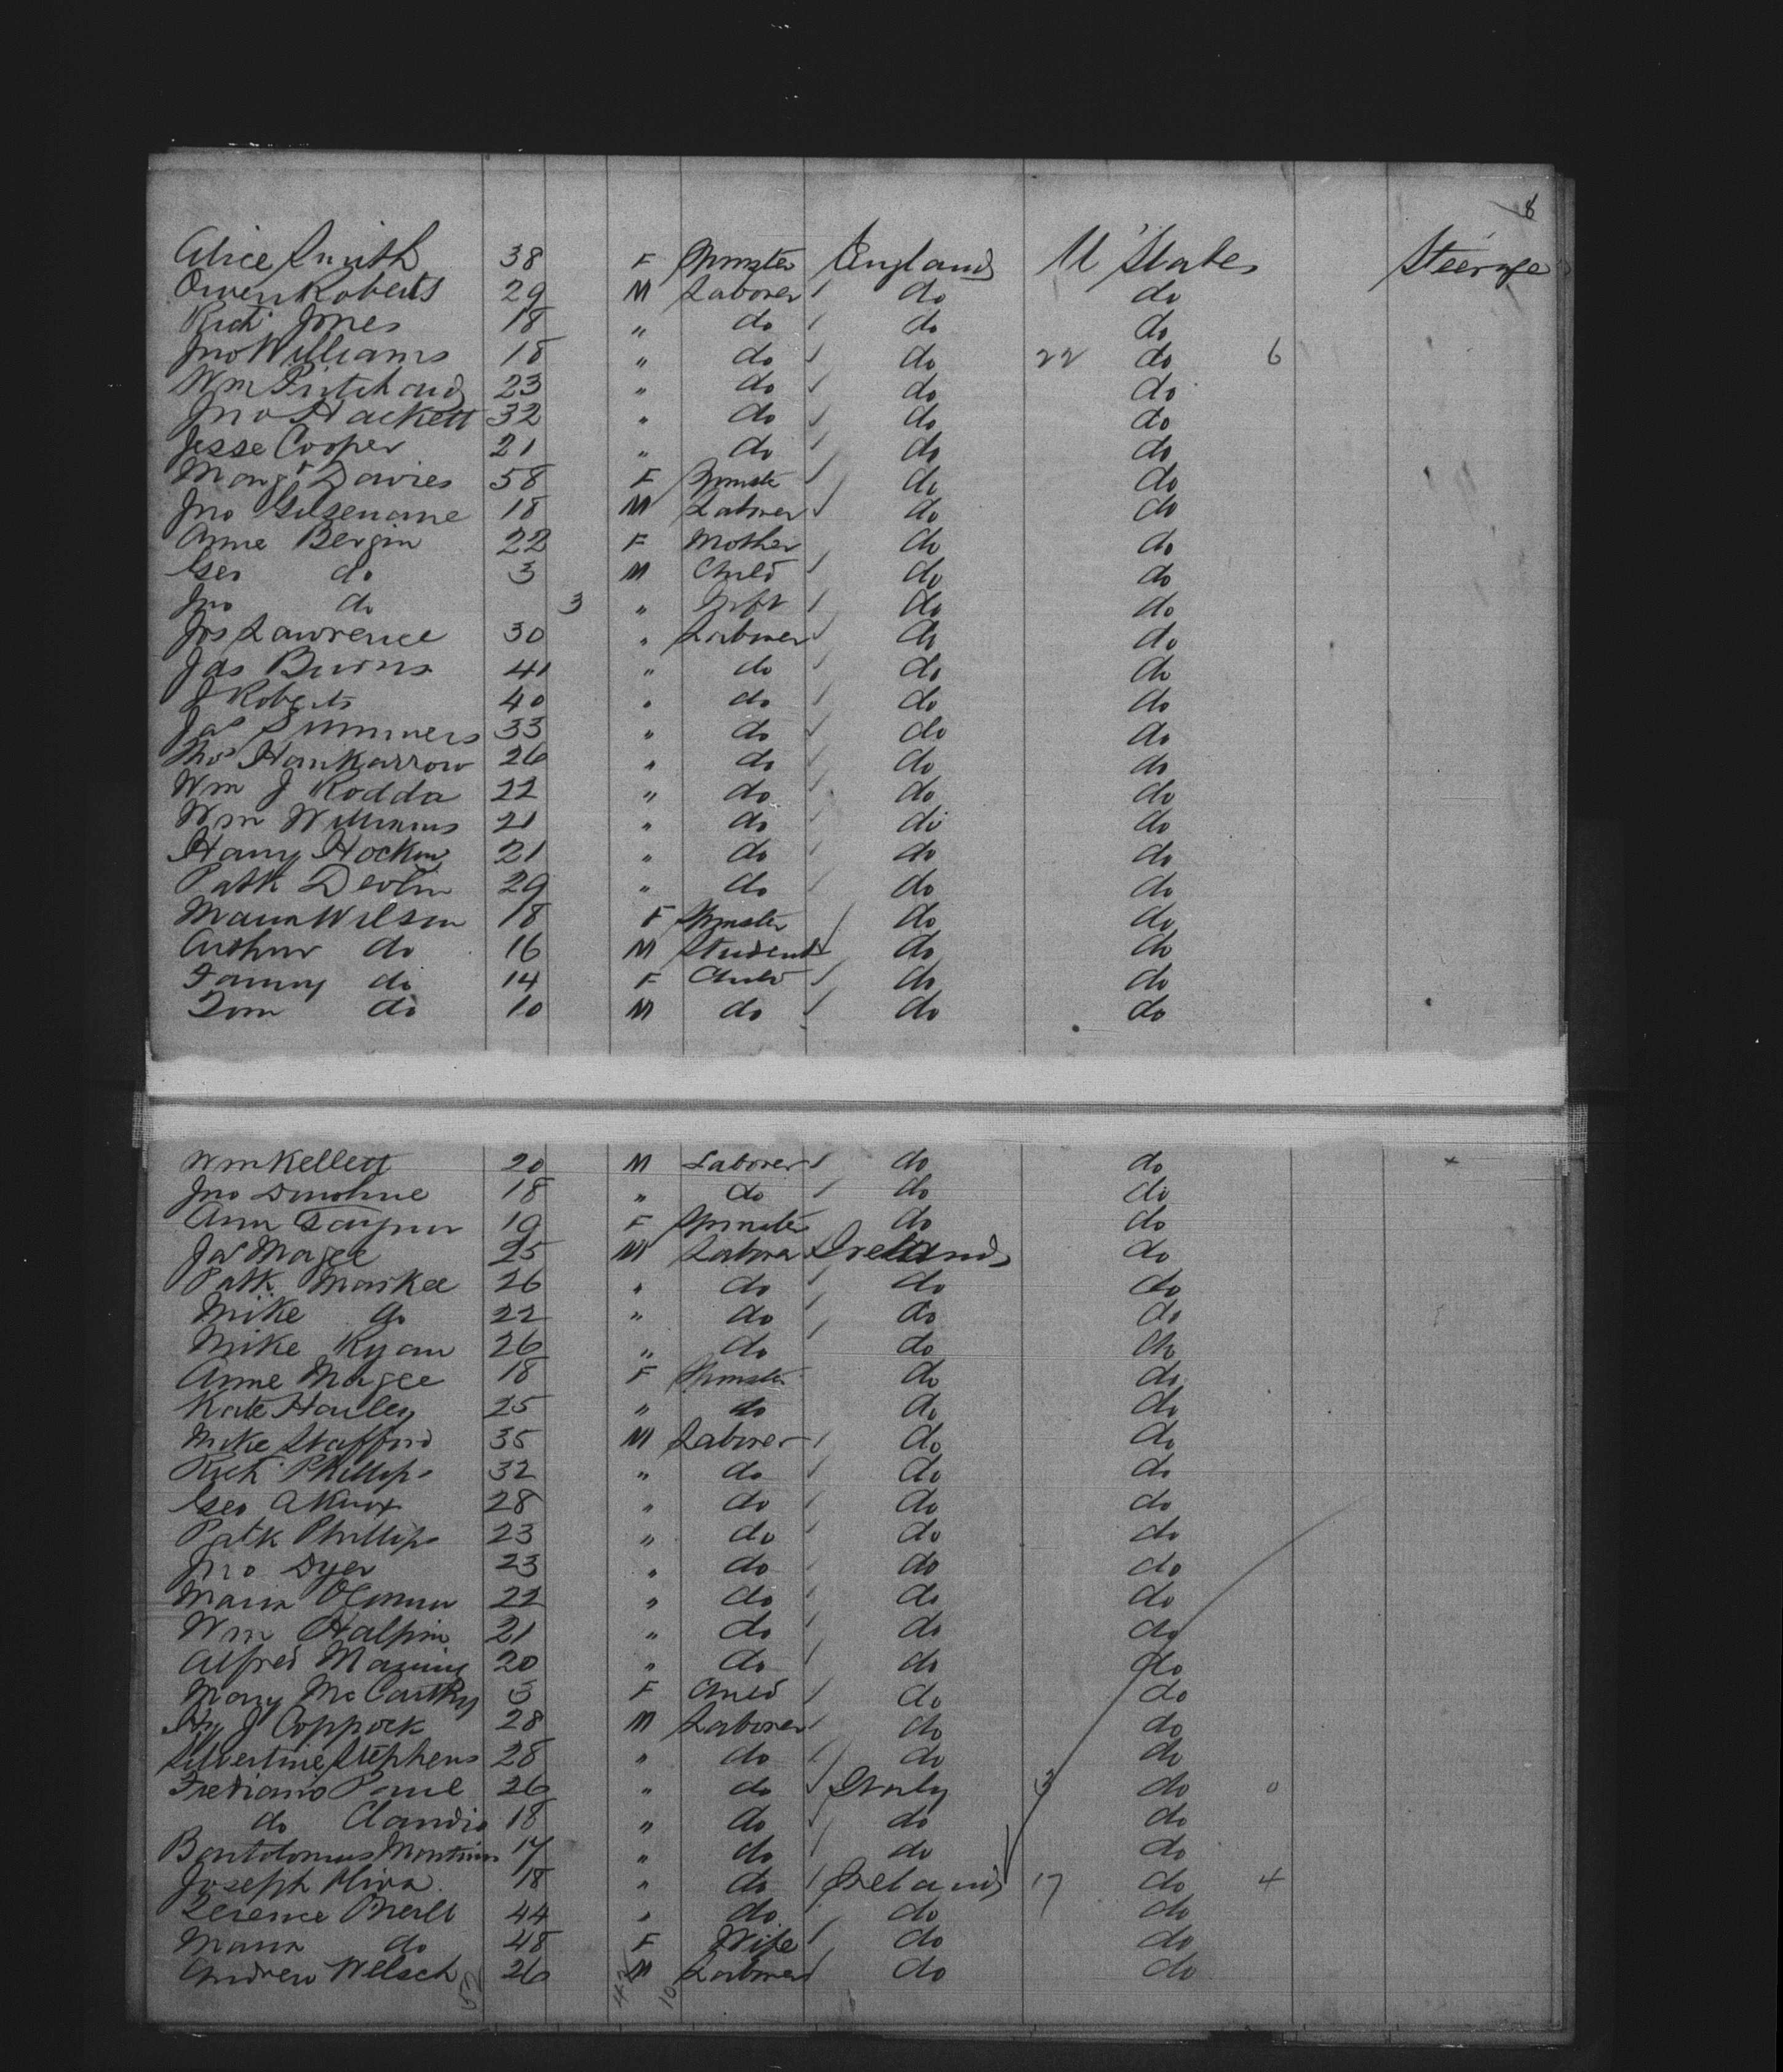 8
Alice Smith 38 F Spinster England U States Steerage
Owen Roberts 29 M Laborer do do
Richd Jones 18 " do do do
Jno Williams 18 " do do 22 do 6
Wm Pritchard 23 " do do do
Jno Hackett 32 " do do do
Jesse Cooper 21 " do do do
Margt Davies 58 F Spinster do do
Jno Gilsenane 18 M Laborer do do
Anne Bergin 22 F Mother do do
Geo do 3 M Child do do
Jno do 3 " Inft do do
Jos Lawrence 30 " Laborer do do
Jas Burns 41 " do do do
J Roberts 40 " do do do
Jas Summers 33 " do do do
Thos Hankarrow 26 " do do do
Wm J Rodda 22 " do do do
Wm Williams 21 " do do do
Harry Hocking 21 " do do do
Patk Devlin 29 " do do do
Maria Wilson 18 F Spinster do do
Arthur do 16 M Student do do
Fanny do 14 F Child do do
Tom do 10 M do do do
Wm Kellett 20 M Laborer do do
Jno Donohue 18 " do do do
Ann 19 F Spinster do do
Jas Magee 25 M Laborer Ireland do
Patk Markee 26 " do do do
Mike do 22 " do do do
Mike Ryan 26 " do do do
Anne Magee 18 F Spinster do do
Kate Hanley 25 " do do do
Mike Stafford 35 M Laborer do do
Richd Phillips 32 " do do do
Geo A Knox 28 " do do do
Patk Phillips 23 " do do do
Jno Dyer 23 " do do do
Maria 22 " do do do
Wm Halpin 21 " do do do
Alfred Manning 20 " do do do
Mary McCarthy 3 F Child do do
Hy J Coppock 28 M Laborer do do
Silvertine Stephens 28 " do do do
Frediano Paul 26 " do Italy 3 do 0
do Claudio 18 " do do do
Bartolomus 17 " do do do
Joseph 18 " do Ireland 17 do 4
Terence 44 " do do do
Maria do 48 F Wife do do
Andrew Welsch 26 M Laborer do do
52 42 10